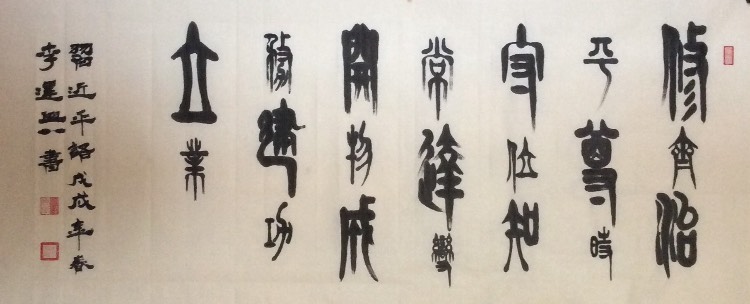 修齊治
平尊時
守位知
常達變
開物成
務建功
立業
習近平語戊戌年春
李運興書